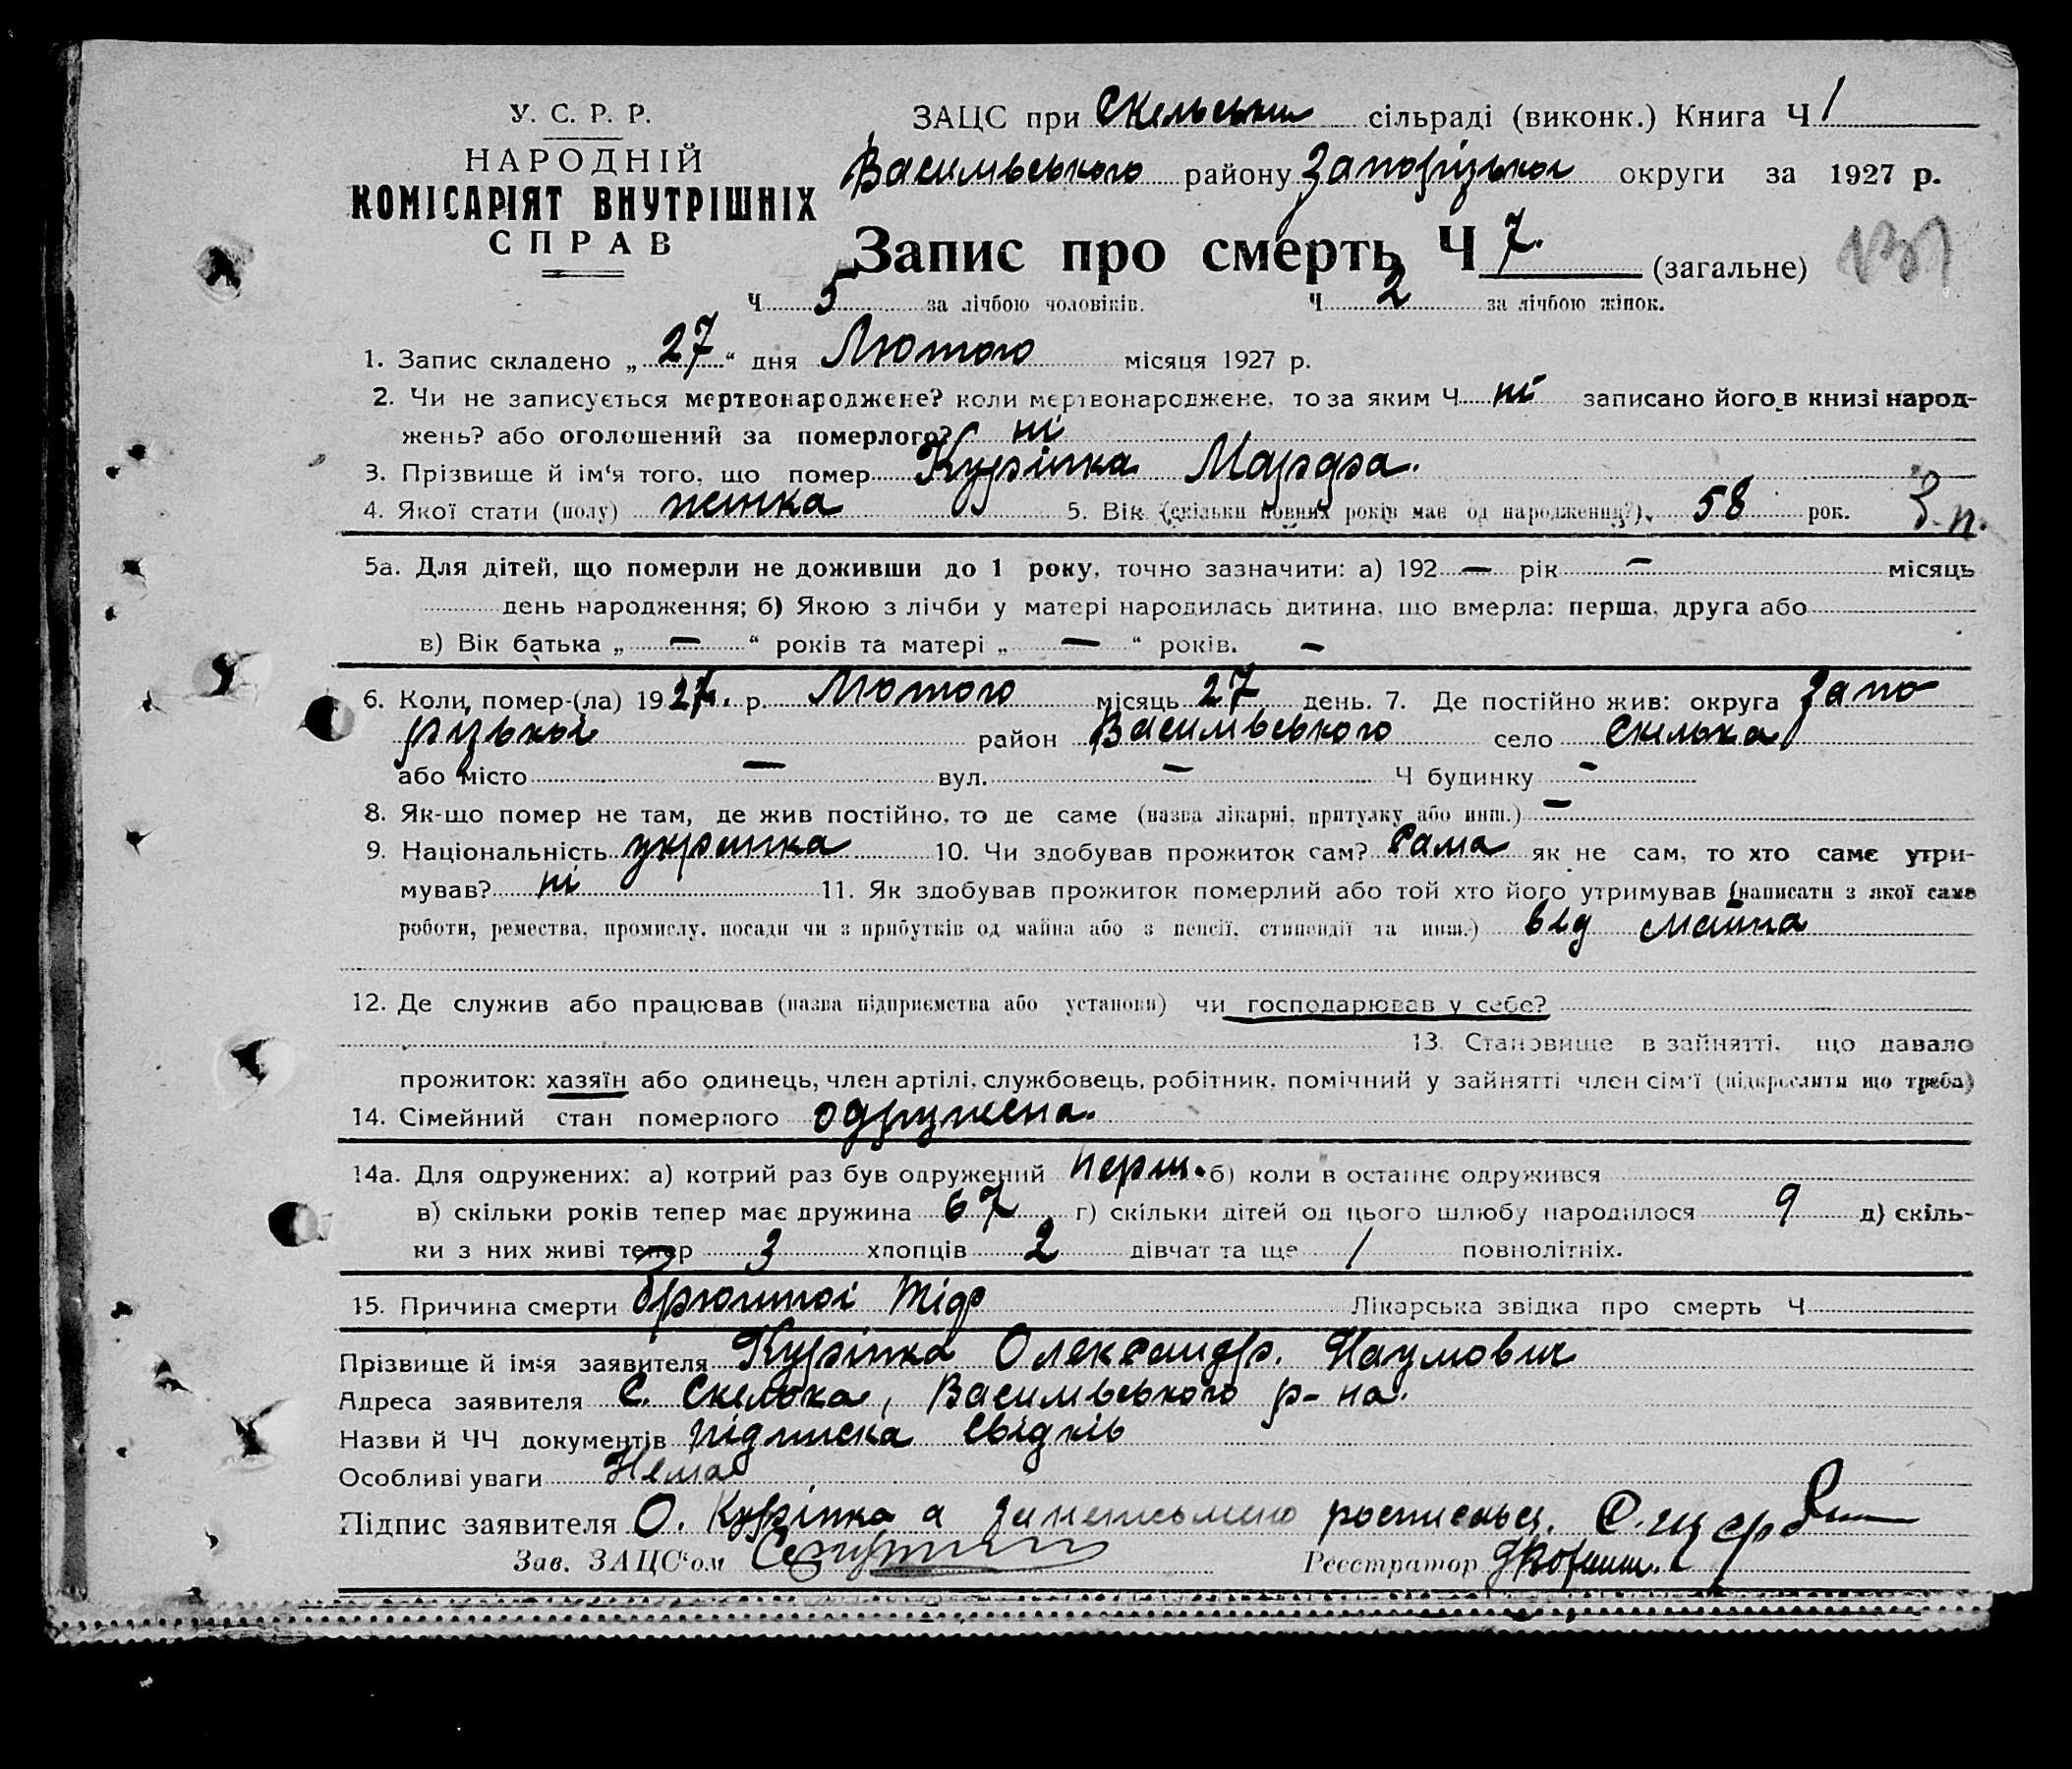 У. С. Р. Р.
НАРОДНІЙ
КОМІСАРІЯТ ВНУТРІШНІХ
СПРАВ
ЗАЦС при Скельськи сільраді (виконк.) Книга Ч 1
Василівського району Запорізької округи за 1927 р.
Запис про смерть Ч 7. (загальне)
Ч 5 за лічбою чоловіків. Ч 2 за лічбою жінок.
1. Запис складено „ 27 “ дня Лютого місяця 1927 р.
2. Чи не записується мертвонароджене? коли мертвонароджене, то за яким Ч ні записано його в книзі народ-
жень? або оголошений за померлого? ні
3. Прізвище й ім‘я того, що помер Курінка
4. Якої статі (полу) жінка 5. Вік (скільки повних років має од народження?) 58 рок. З. п.
5а. Для дітей, що померли не доживши до 1 року, точно зазначити: а) 192 — рік — місяць
день народження; б) Якою з лічби у матері народилась дитина, що вмерла: перша, друга або
в) Вік батька „ — “ років та матері „ — “ років. –
6. Коли помер-(ла) 1927. р. Лютого місяць 27 день. 7. Де постійно жив: округа Запо
різької район Василівського село Скелька
або місто — вул. — Ч будинку -
8. Як-що помер не там, де жив постійно, то де саме (назва лікарні, притулку або инш.) —
9. Національність українка 10. Чи здобував прожиток сам? Сама як не сам, то хто саме утри-
мував? ні 11. Як здобував прожиток померлий або той хто його утримував (написати з якої саме
роботи, ремества, промислу, посади чи з прибутків од майна або з пенсії, стипендії та инш.) від майна
12. Де служив або працював (назва підприємства або установи) чи господарював у себе?
13. Становище в зайнятті, що давало
прожиток: хазяїн або одинець, член артілі, службовець, робітник, помічний у зайнятті член сім‘ї (підкреслити що треба)
14. Сімейний стан померлого одружена.
14а. Для одружених: а) котрий раз був одружений перш. б) коли в останнє одружився
в) скільки років тепер має дружина 67 г) скільки дітей од цього шлюбу народилося 9 д) скіль-
ки з них живі тепер 3 хлопців 2 дівчат та ще 1 повнолітніх.
15. Причина смерти брюшной тіф Лікарська звідка про смерть Ч
Прізвище й ім‘я заявителя Курінка Олександр. Наумович
Адреса заявителя с. Скелька, Василівського р-на.
Назви й ЧЧ документів підписка свідків
Особливі уваги Нема
Підпис заявителя О. Курінка а за неписьмено росписався С. Щерб
Зав. ЗАЦС‘ом
Реєстратор